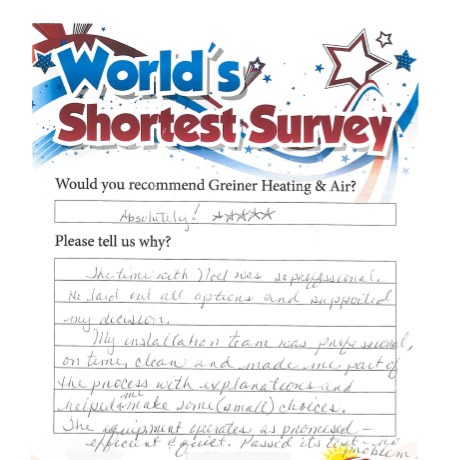 World's
Shortest Survey
Would you recommend Greiner Heating & Air?
Absolutely! ☆☆☆☆☆
Please tell us why?
The time with Noel was so professional.
He laid out all options and supported
my decision.
My installation team was professional,
on time, clean and made me part of
the process with explanations and
helped me make some (small) choices.
The equipment operates as promised –
efficient & quiet. Passed its test – no
problem